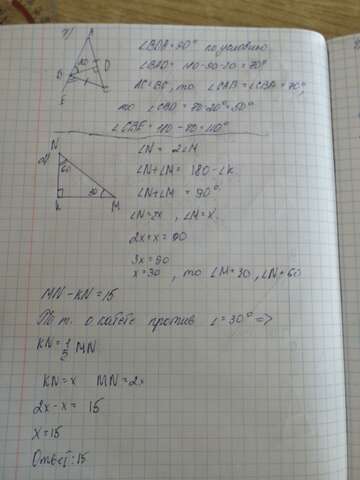 ∠BDA=90° по условию
∠BAD= 180-90-20=70°
AC=BC, то ∠CAB=∠CBA=70°,
то ∠CBD= 70-20=50°
∠CBE= 180-70=110°
2) ∠N = 2∠M
∠N+∠M= 180-∠K
∠N+∠M= 90°
∠N=2x, ∠M=x.
2x+x=90
3x=90
x=30, то ∠M=30, ∠N=60
N
60
K
30
M
MN-KN=15
По т. о катете против ∠=30° =>
KN=1/2 MN
KN=x MN=2x
2x-x= 15
x=15
Ответ: 15